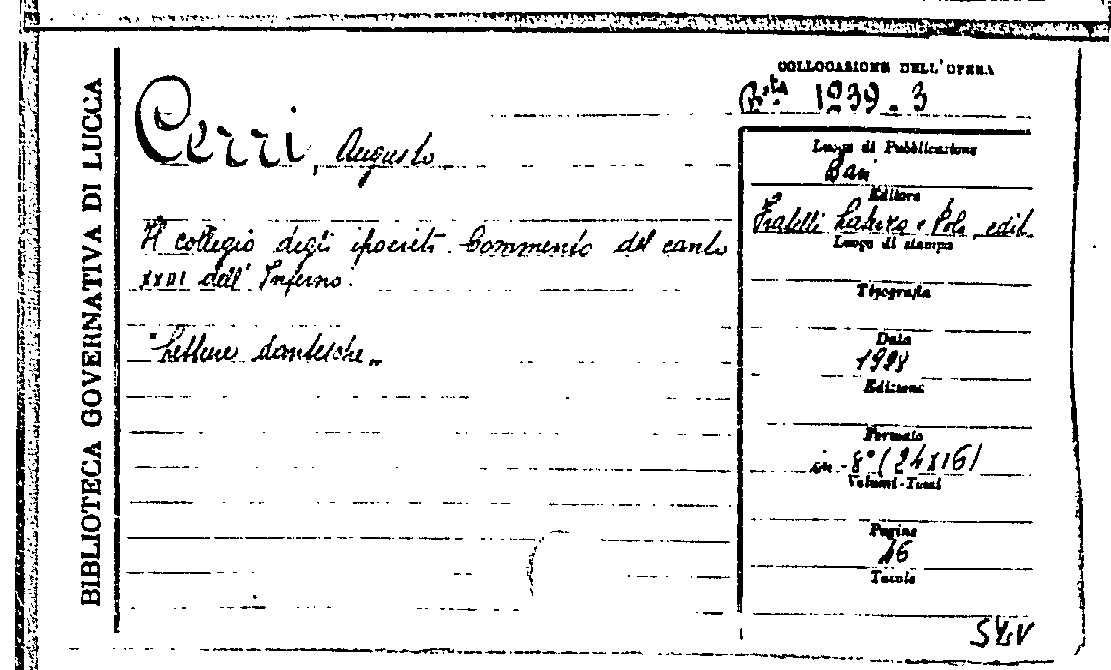 BIBLIOTECA GOVERNATIVA DI LUCCA
COLLOCAZIONE DELL'OPERA
B.ta 1939.3
Cerri, Augusto
Il collegio degli ipocriti. Commento del canto
XXIII dell'Inferno.
"Letture dantesche„
Luogo di Pubblicazione
Bari
Editore
Fratelli Laterza e Polo, edit.
Luogo di stampa
Tipografia
Data
Edizione
Formato
in-8° (24x16)
Volumi-Tomi
Pagine
16
Tavole